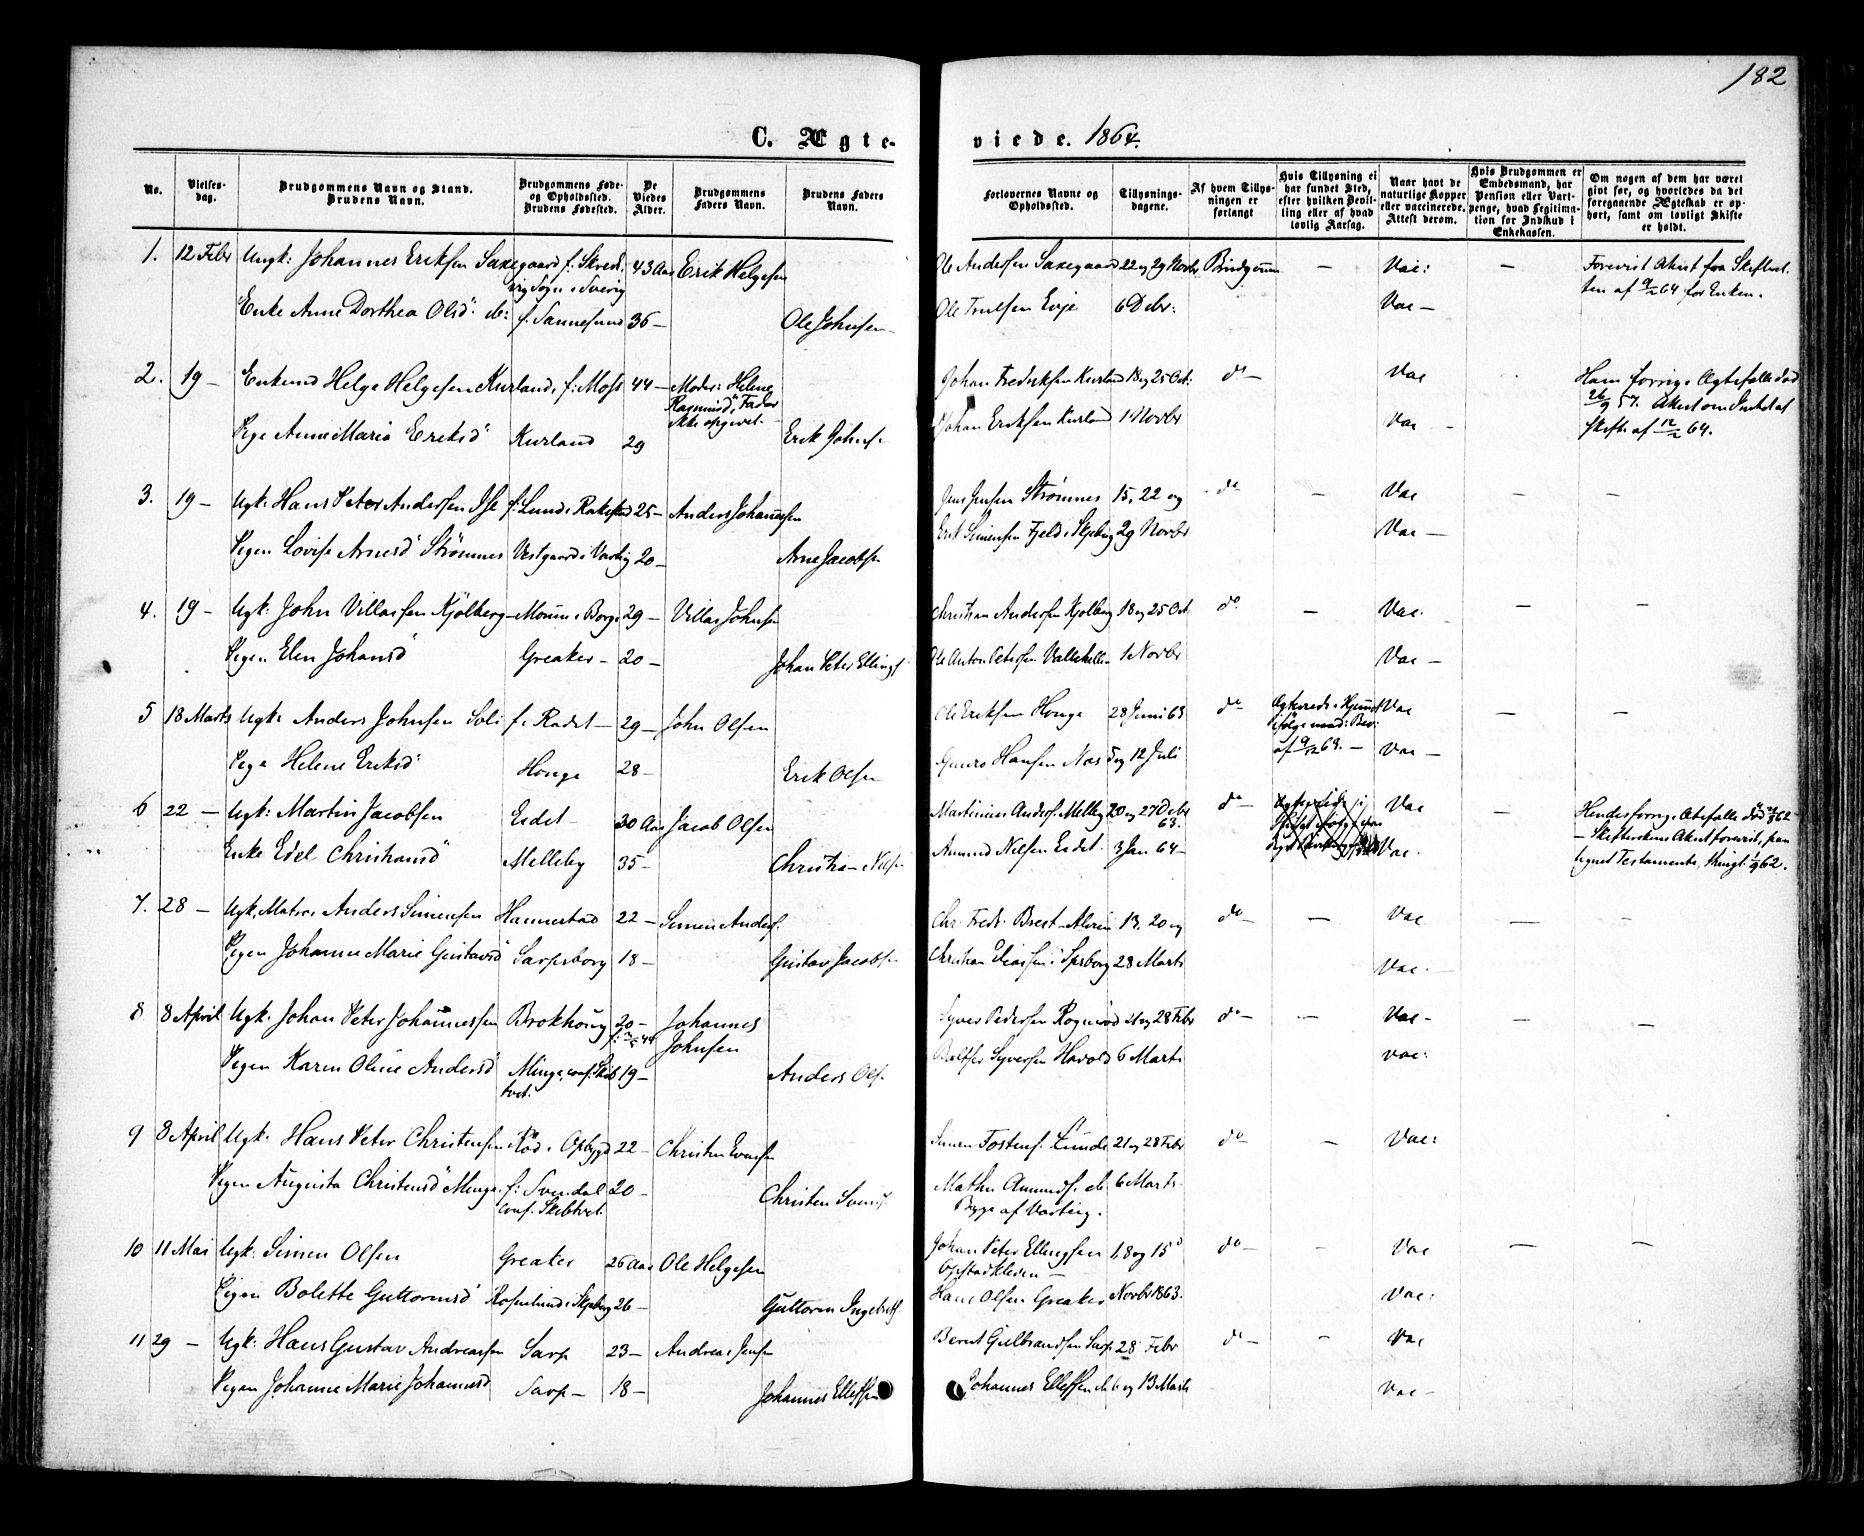 182
C. Ægte-
viede. 1864.
No.
Vielses-
dag.
Brudgommens Navn og Stand.
Brudens Navn.
Brudgommens Føde-
og Opholdssted.
Brudens Fødested.
De
Viedes
Alder.
Brudgommens
Faders Navn.
Brudens Faders
Navn.
Forlovernes Navne og
Opholdssted.
Tillysnings-
dagene.
Af hvem Tillys-
ningen er
forlangt
Hvis Tillysning ei
har fundet Sted,
efter hvilken Bevil-
ling eller af hvad
lovlig Aarsag.
Naar havt de
naturlige Kopper
eller vaccinerede.
Attest derom.
Hvis Brudgommen er
Embedsmand, har
Pension eller Vart-
penge, hvad Legitima-
tion for Indskud i
Enkekassen.
Om nogen af dem har været
givt før, og hvorledes da det
foregaaende Ægteskab er op-
hørt, samt om lovligt Skifte
er holdt.
1. 12 Febr Ungk: Johannes Eriksen Saxegaard f: Skreds- 43 Aar Erik Helgesen Ole Andersen Saxegaard 22 og 29 Novbr Brudgommen — Vac: — Forevist Akest fra Skifteret-
vig Sogn i Sverig ten af 9/2 64 for Enken.
Enke Anne Dorthea Olsd: f. Sannesund 36 — Ole Johnsen Ole Trulsen Evje 6 Debr: Vac —
2. 19 — Enkemd Helge Helgesen Kurland, f: Moss 44 — Moder: Helene Johan Fredriksen Kurland 18 og 25 Oct: do — Vac Hans forrige Ægtefælle død
Rasmusd, Fader 26/9 57. Akest om Indstat
ikke opgivet. Skifte af 12/2 64.
Pige Anne Maria Eriksd Kurland 29 Erik Johns. Johan Eriksen Kurland 1 Novbr Vac —
3. 19 — Ugk: Hans Peter Andersen Ise f: Lund i Rakkestad 25 — Anders Johannesen Jens Jensen Strømnes 15, 22 og do — Vac — —
Pigen Lovise Arnesd Strømnes Vestgaard i Varteig 20 — Arne Jacobsen Erik Simensen Fjeld i Skjeberg 29 Novbr Vac —
4. 19 — Ugk: John Villassen Kjölberg — Moum i Borge 29 — Villas Johnsen Christian Andersen Kjolberg 18 og 25 Oct. do — Vac. — —
Pigen Elen Johansd Greaker — 20 — Johan Peter Ellings. Ole Anton Petersen Vallehellen 1 Novbr Vac —
5 18 Marts Ugk: Anders Johnsen Soli f. Radet — 29 — John Olsen Ole Eriksen Honge 28 Juni 63 do — Vac — —
af 9/12 63. —
Pige Helene Eriksd Honge 28 — Erik Olsen Hansen Næs 5 og 12 Juli Vac —
6 22 — Ugk: Martin Jacobsen Eidet — 30 Aar Jacob Olsen Martinius Anders. Melleby 20 og 27 Debr 63. do — Vac — Hendes forrige Ægtefælle død 62
— Skifterettens Akest forevist, paa
Enke Edel Christiansd Melleby 35 — Christian Nilsen Amund Nilsen Eidet. 3 Jan 64 — Vac. tegnet Testamente, thingl: 62.
7. 28 — Ugk, Matros Anders Simensen Hannestad 22 — Simen Anders. Chr. Fedr. Brest-Alvim 13, 20 og do — — Vac — —
Pigen Johanne Marie Gustavsd Sarpsborg 18 — Gustav Jacobsen Christian Eliassen i Sarpsborg 28 Marts Vac.
8 8 April Ugk. Johan Peter Johannessen Brokhoug 20 — Johannes Johnsen Syver Pedersen Rognerød 21 og 28 Febr do — — Vac — — —
Pigen Karen Oline Andersd Minge, conf: Skibtvet. 19 — Anders Ols. Syversen Havold 6 Marts vac:
9 8 April Ugk. Hans Peter Christensen Röd i Opbygd 22 — Christen Simen Tostens. Lunde 21 og 28 Febr do — Vac:
Pigen Augusta Christensd Minge. f: Svendal 20 — Christen Svends. Mathis Amunds. 6 Marts.
conf. Skibtvet. Bygge af Varteig.
10 11 Mai Ugk: Simen Olsen Greaker 26 Aar Ole Helgesen Johan Peter Ellingsen 1, 8 og 15 do — Vac — —
Opstadkleven —
Pigen Bolette Guttormsd Rosenlund i Skjeberg 26 — Guttorm Ingebrets. Hans Olsen Greaker Novbr 1863. Vac:
11 29 — Ugk: Hans Gustav Andreassen Sarp 23 — Andreas Jensen Bernt Gulbrandsen Sarp 28 Febr do — — Vac
Pigen Johanne Marie Johannesd Sarp — 18 — Johannes Ellefsen Johannes Ellefsen 6 og 13 Marts Vac —